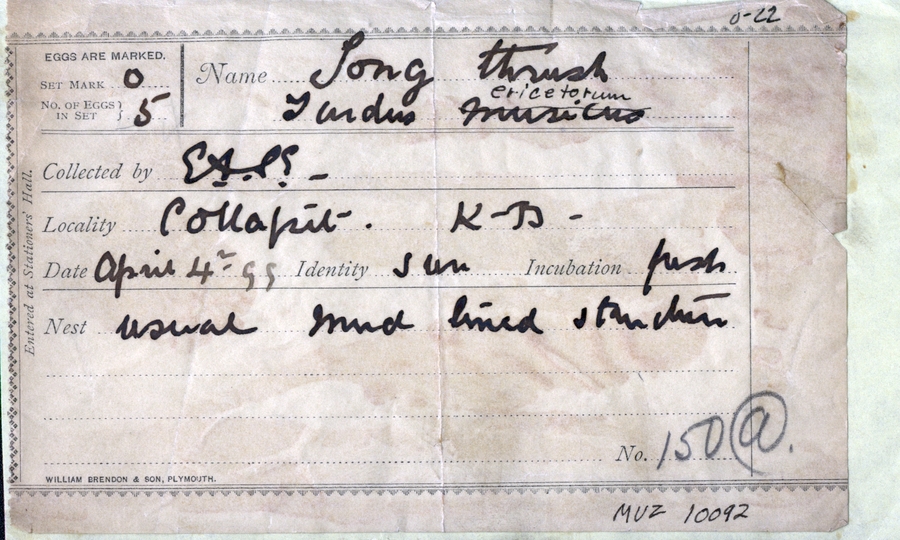 0-22
EGGS ARE MARKED.
SET MARK 0
NO. OF EGGS IN SET } 5
Name Song thrush
ericetorum
Turdus musicus
Collected by E.A.S.E.
Locality Collapit. K-B-
Date April 4th 99 Identity sun Incubation fresh
Nest usual mud lined structure
No. 150 (a).
Entered at Stationers' Hall.
WILLIAM BRENDON & SON, PLYMOUTH.
MUZ 10092